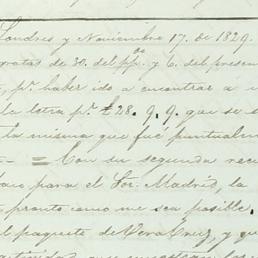 Londres y Noviembre 17. de 1829.
gratas de 30. del pp.do y 6. del presen
, pr. haber ido a encontrar a
la letra pr. £28. 9. 9. que se
la misma que fué puntualm
= Con su segunda
para el Sor. Madrís, la
pronto como me sea posible.
el paquete de Vera Cruz, y qu